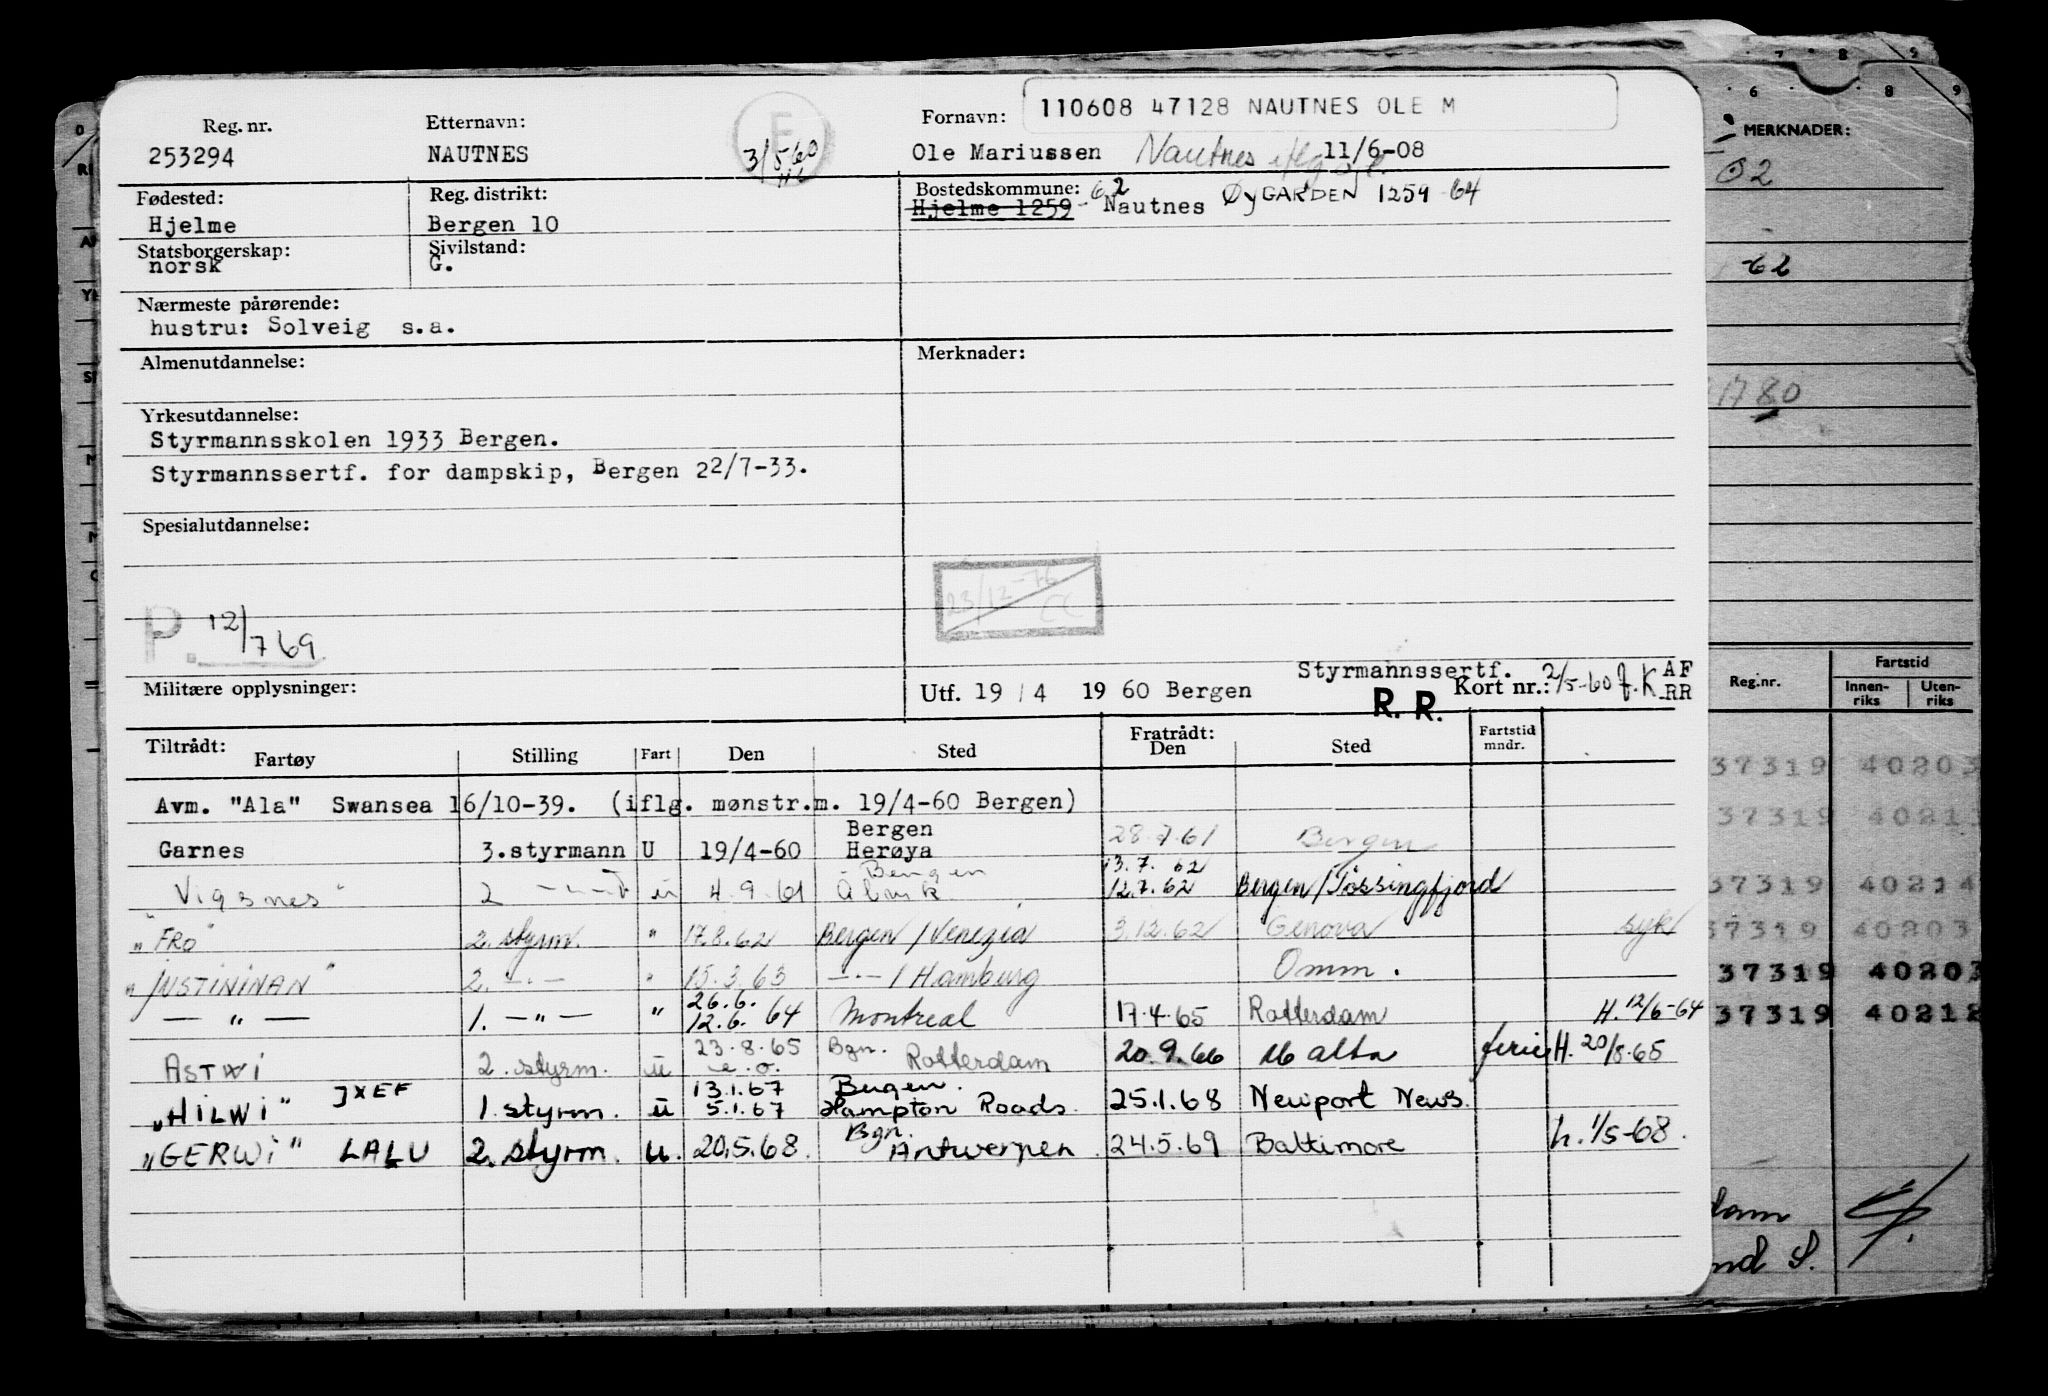 110608 47128 NAUTNES OLE M
Reg. nr. Etternavn: Fornavn:
253294 NAUTNES 3/5 60 Ole Mariussen Nautnes 11/6-08
Fødested: Reg. distrikt: Bostedskommune:
Hjelme Bergen 10 Hjelme 1259 - 62 Nautnes ØyGARDEN 1259 64
Statsborgerskap: Sivilstand:
norsk G.
Nærmeste pårørende:
hustru: Solveig s.a.
Almenutdannelse: Merknader:
Yrkesutdannelse:
Styrmannsskolen 1933 Bergen.
Styrmannssertf. for dampskip, Bergen 22/7-33.
Spesialutdannelse:
23/12-76
P. 12/7 69
Militære opplysninger:
Styrmannssertf. 2/5-60 AF
Utf. 19 / 4 19 60 Bergen R. R. Kort nr.: RR
Tiltrådt: Fratrådt:
Fartøy Stilling Fart Den Sted Den Sted Fartstid mndr.
Avm. "Ala" Swansea 16/10-39. (iflg. mønstr.m. 19/4-60 Bergen)
Bergen
Garnes 3.styrmann U 19/4-60 Herøya 28.7.61 Bergen
Bergen 13.7.62
Vigsnes" 2 —"— u 4.9.61 12.7.62 Bergen/Jøssingfjord
"FRO" 2. styrm. " 17.8.62 Bergen / Venezia 3.12.62 Genova syk
"JUSTININAN" 2. —"— " 15.3.63 —"— / Hamburg Omm.
26.6.
— " — 1. —"— " 12.6. 64 Montreal 17.4.65 Rotterdam H. 12/6-64
23.8.65 Bgn.
ASTWI 2. styrm. u e.o. Rotterdam 20.9.66 Malta ferie H. 20/8-65
13.1.67 Bergen.
"HILWI" JXEF 1. styrm. u 5.1.67 Hampton Roads. 25.1.68 Newport News.
Bgn.
"GERWI" LALU 2. styrm. u. 20.5.68. Antwerpen 24.5.69 Baltimore h. 1/5-68.
7 8 9
6 8 9
MERKNADER:
62
-62
Reg.nr. Fartstid
Innenriks Utenriks
37319 40203
37319 40213
37319 40214
37319 40203
37319 40203
37319 40212